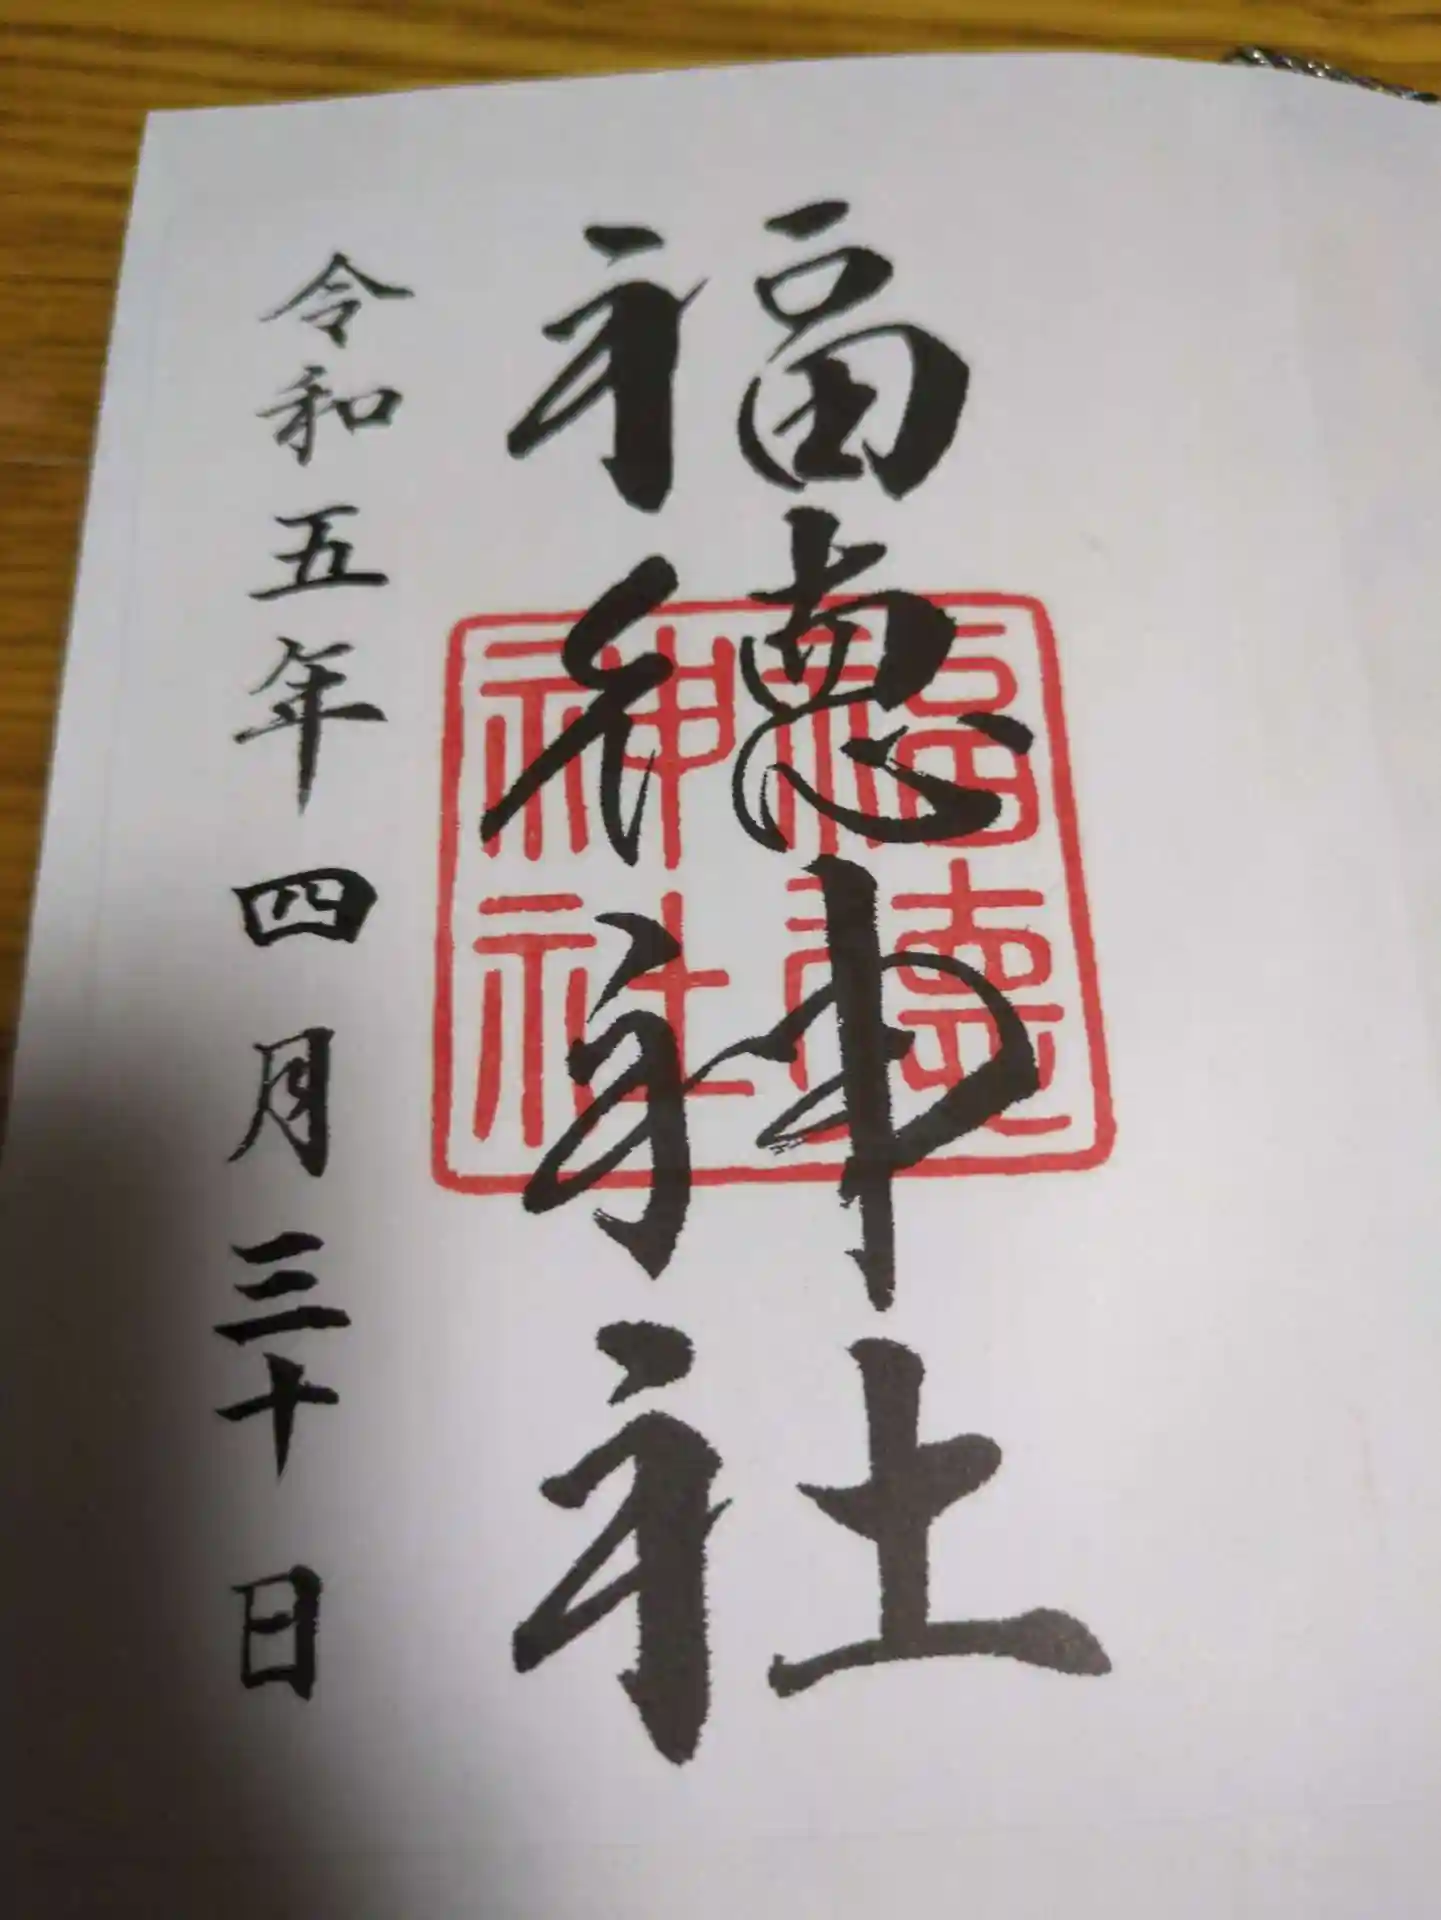 福徳神社
福徳神社
令和五年四月三十日